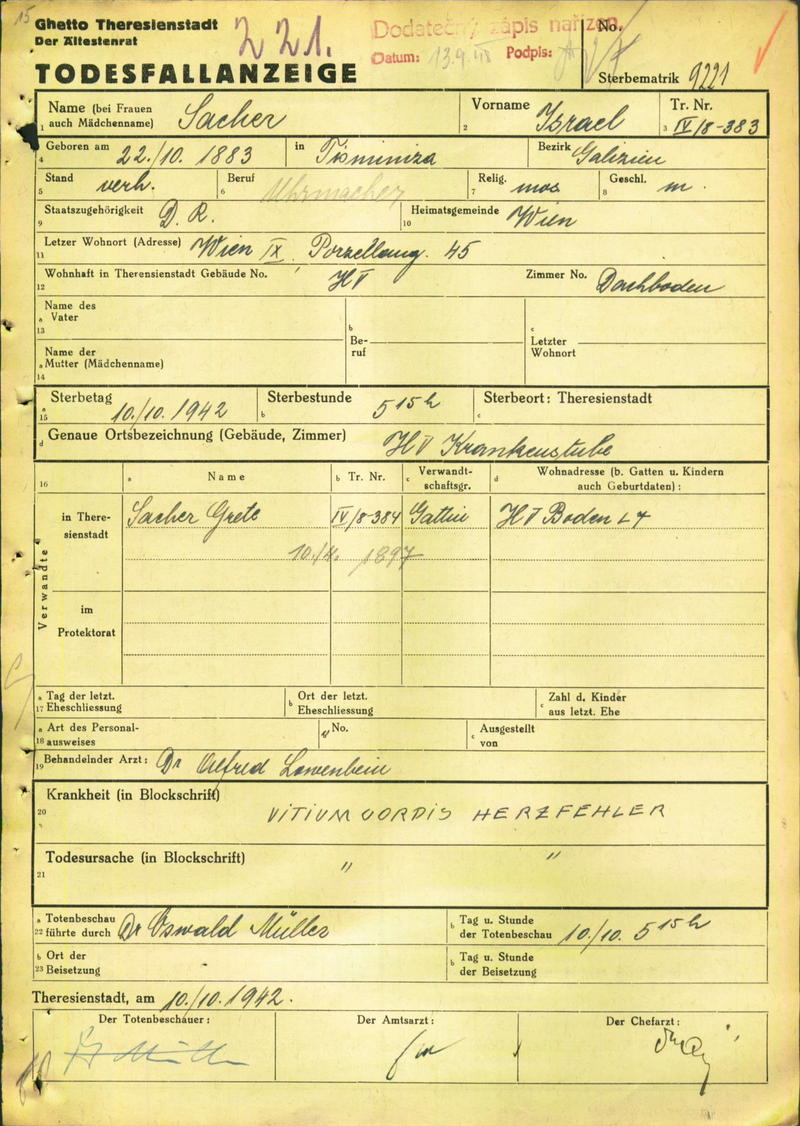 15
Ghetto Theresienstadt
Der Ältestenrat
221.
Dodatečný zápis nařízen.
Datum: 13.9.48 Podpis:
No.
TODESFALLANZEIGE
Sterbematrik 9221
Name (bei Frauen auch Mädchenname) Sacher
1
Vorname Israel
2
Tr. Nr. IV/8-383
3
Geboren am 22./10. 1883 in Tisminiza Bezirk Galizien
4
Stand verh. Beruf Uhrmacher Relig. mos Geschl. m.
5 6 7 8
Staatszugehörigkeit D. R. Heimatsgemeinde Wien
9 10
Letzer Wohnort (Adresse) Wien IX. Porzellang. 45
11
Wohnhaft in Therensienstadt Gebäude No. HV Zimmer No. Dachboden
12
Name des
a Vater
13
b
Be-
ruf
c
Letzter
Wohnort
Name der
a Mutter (Mädchenname)
14
Sterbetag 10./10. 1942 Sterbestunde 5 15 h Sterbeort: Theresienstadt
a 15 b c
d Genaue Ortsbezeichnung (Gebäude, Zimmer) HV Krankenstube
16 a Name b Tr. Nr. c Verwandt-schaftsgr. d Wohnadresse (b. Gatten u. Kindern auch Geburtdaten):
Verwandte
in There-sienstadt Sacher Grete IV/8-384 Gattin HV Boden L4
10./4. 1897
im Protektorat
a Tag der letzt.
17 Eheschliessung
b Ort der letzt.
Eheschliessung
c Zahl d. Kinder
aus letzt. Ehe
a Art des Personal-
18 ausweises
b No.
c Ausgestellt
von
19 Behandelnder Arzt: Dr Alfred Löwenbein
Krankheit (in Blockschrift) VITIUM CORDIS HERZFEHLER
20
Todesursache (in Blockschrift) " "
21
a Totenbeschau
22 führte durch Dr Oswald Müller
b Tag u. Stunde
der Totenbeschau 10/10. 5 15 h
b Ort der
23 Beisetzung
b Tag u. Stunde
der Beisetzung
Theresienstadt, am 10./10. 1942.
Der Totenbeschauer: Der Amtsarzt: Der Chefarzt: